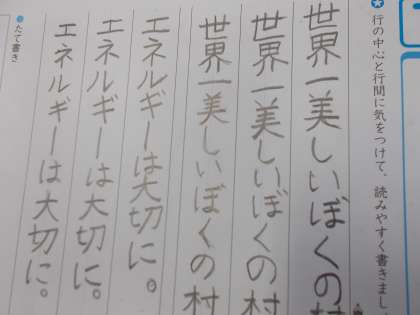 行の中心と行間に気をつけて、読みやすく書きまし
世界一美しいぼくの村
世界一美しいぼくの村
世界一美しいぼくの村
エネルギーは大切に。
エネルギーは大切に。
エネルギーは大切に。
たて書き